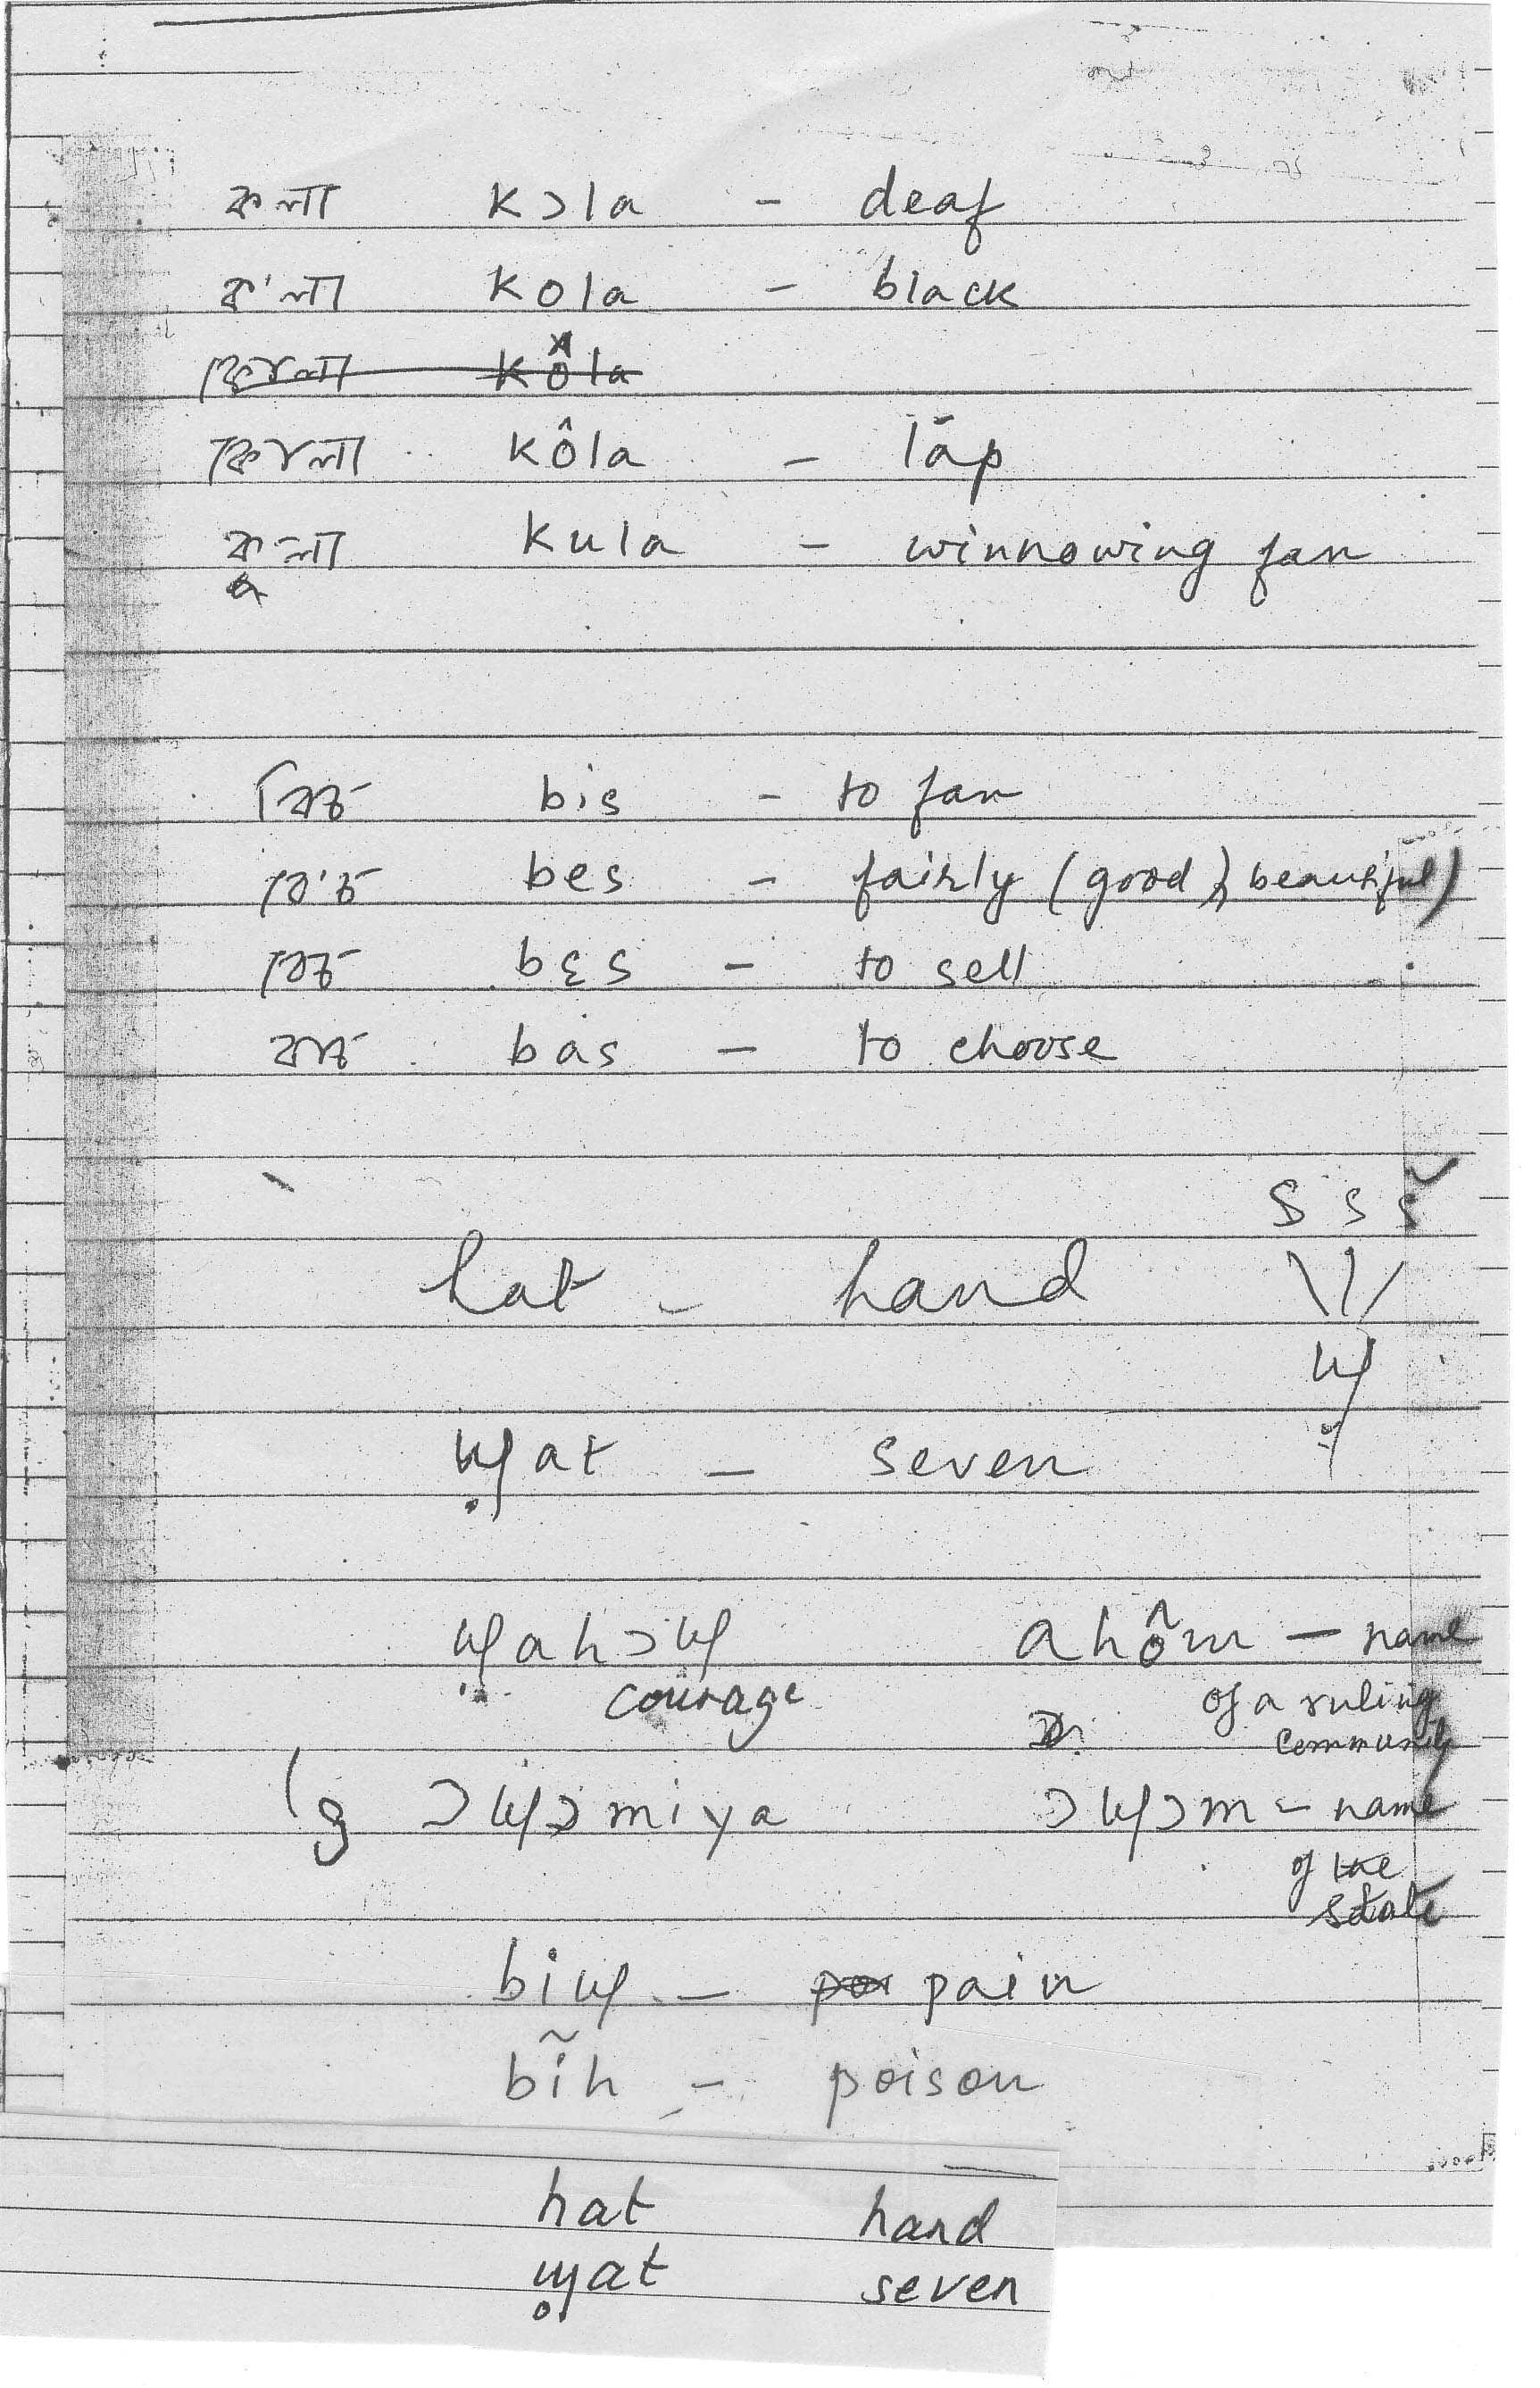 কলা kɔla - deaf
ক'লা kola - black
কোলা kôla
কোলা kôla - lāp
কুলা kula - winnowing fan
বিচ bis - to fan
বে'চ bes - fairly (good, beautiful)
বেচ bɛs - to sell
বাচ bas - to choose
S S S
hat - hand
ɰ
ɰ̣at - seven
ɰ̣ahɔɰ ahôm - name
courage of a ruling
community
ɔɰɔmiya ɔɰɔm - name
of the
state
biɰ - pain
bĩh - poison
hat hand
ɰ̣at seven